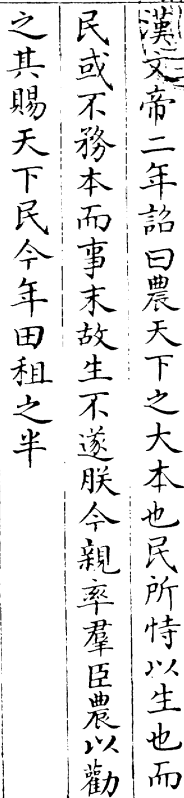 漢文帝二年詔曰農天下之大本也民所恃以生也而
民或不務本而事末故生不遂朕今親率羣臣農以勸
之其賜天下民今年田租之半